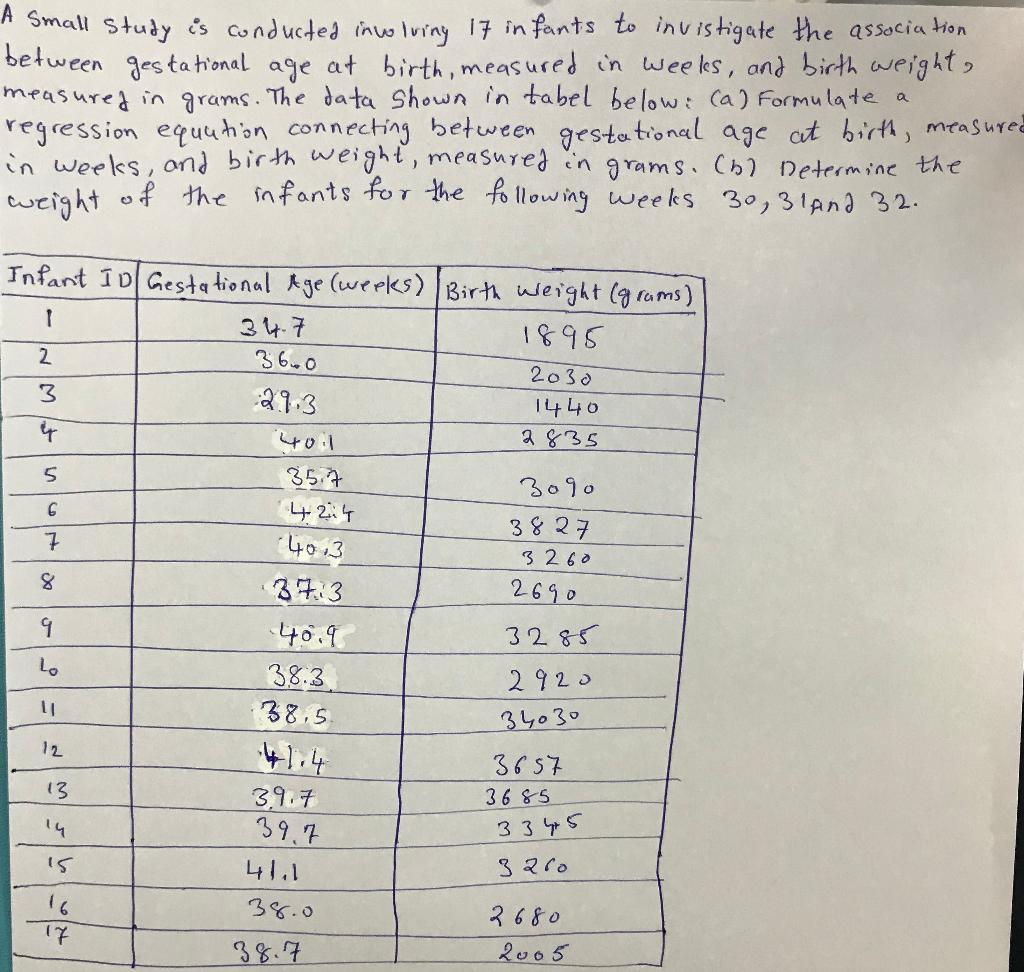 A small study is conducted involving 17 infants to invistigate the association
between gestational age at birth, measured in weeks, and birth weight,
measured in grams. The data shown in tabel below: (a) Formulate a
regression equution connecting between gestational age at birth, measured
in weeks, and birth weight, measured in grams. (b) Determine the
weight of the infants for the following weeks 30, 31 And 32.
Infant ID Gestational Age (weeks) Birth weight (grams)
1 34.7 1895
2 36.0 2030
3 29.3 1440
4 40.1 2835
5 35.7 3090
6 42.4 3827
7 40.3 3260
8 37.3 2690
9 40.9 3285
10 38.3 2920
11 38.5 34030
12 41.4 3657
13 39.7 3685
14 39.7 3345
15 41.1 3260
16 38.0 2680
17 38.7 2005